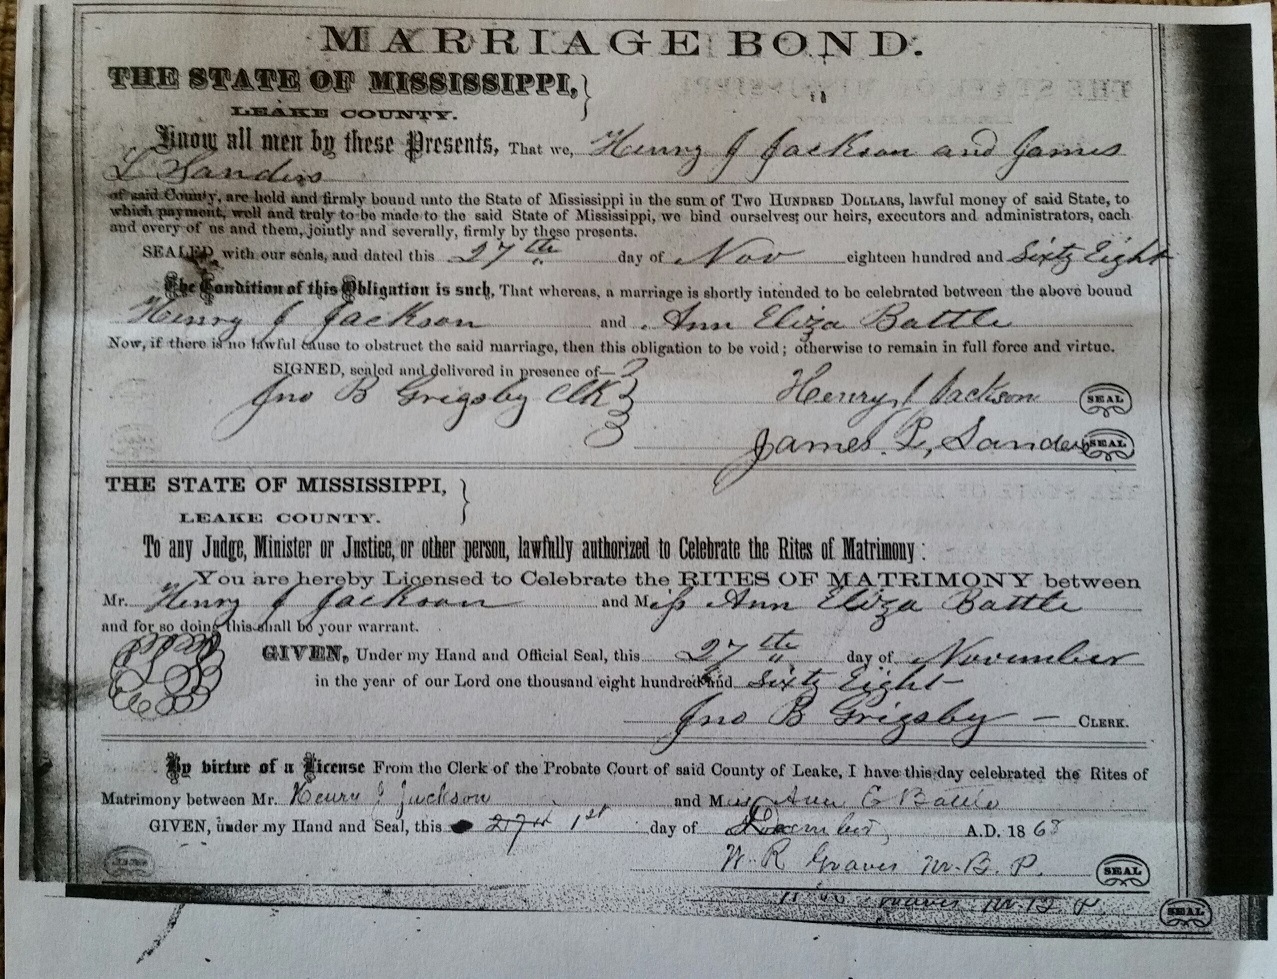 MARRIAGE BOND.
THE STATE OF MISSISSIPPI, }
LEAKE COUNTY.
Know all men by these Presents, That we, Henry J Jackson and James
L Sanders
of said County, are held and firmly bound unto the State of Mississippi in the sum of Two Hundred Dollars, lawful money of said State, to
which payment, well and truly to be made to the said State of Mississippi, we bind ourselves; our heirs, executors and administrators, each
and every of us and them, jointly and severally, firmly by these presents.
SEALED with our seals, and dated this 27th day of Nov eighteen hundred and Sixty Eight
The Condition of this Obligation is such, That whereas, a marriage is shortly intended to be celebrated between the above bound
Henry J Jackson and Ann Eliza Battle
Now, if there is no lawful cause to obstruct the said marriage, then this obligation to be void; otherwise to remain in full force and virtue.
SIGNED, sealed and delivered in presence of—
Jno B Grigsby Clk Henry J Jackson SEAL
James. L, Sanders SEAL
THE STATE OF MISSISSIPPI, }
LEAKE COUNTY.
To any Judge, Minister or Justice, or other person, lawfully authorized to Celebrate the Rites of Matrimony:
You are hereby Licensed to Celebrate the RITES OF MATRIMONY between
Mr. Henry J Jackson and Miss Ann Eliza Battle
and for so doing this shall be your warrant.
GIVEN, Under my Hand and Official Seal, this 27th day of November
in the year of our Lord one thousand eight hundred and Sixty Eight
Jno B Grigsby — CLERK.
By virtue of a License From the Clerk of the Probate Court of said County of Leake, I have this day celebrated the Rites of
Matrimony between Mr. Henry J Jackson and Miss Ann E Battle
GIVEN, under my Hand and Seal, this 27th 1st day of December, A.D. 1868
W. R Graves M.B.P. SEAL
Graves M.B.P. SEAL